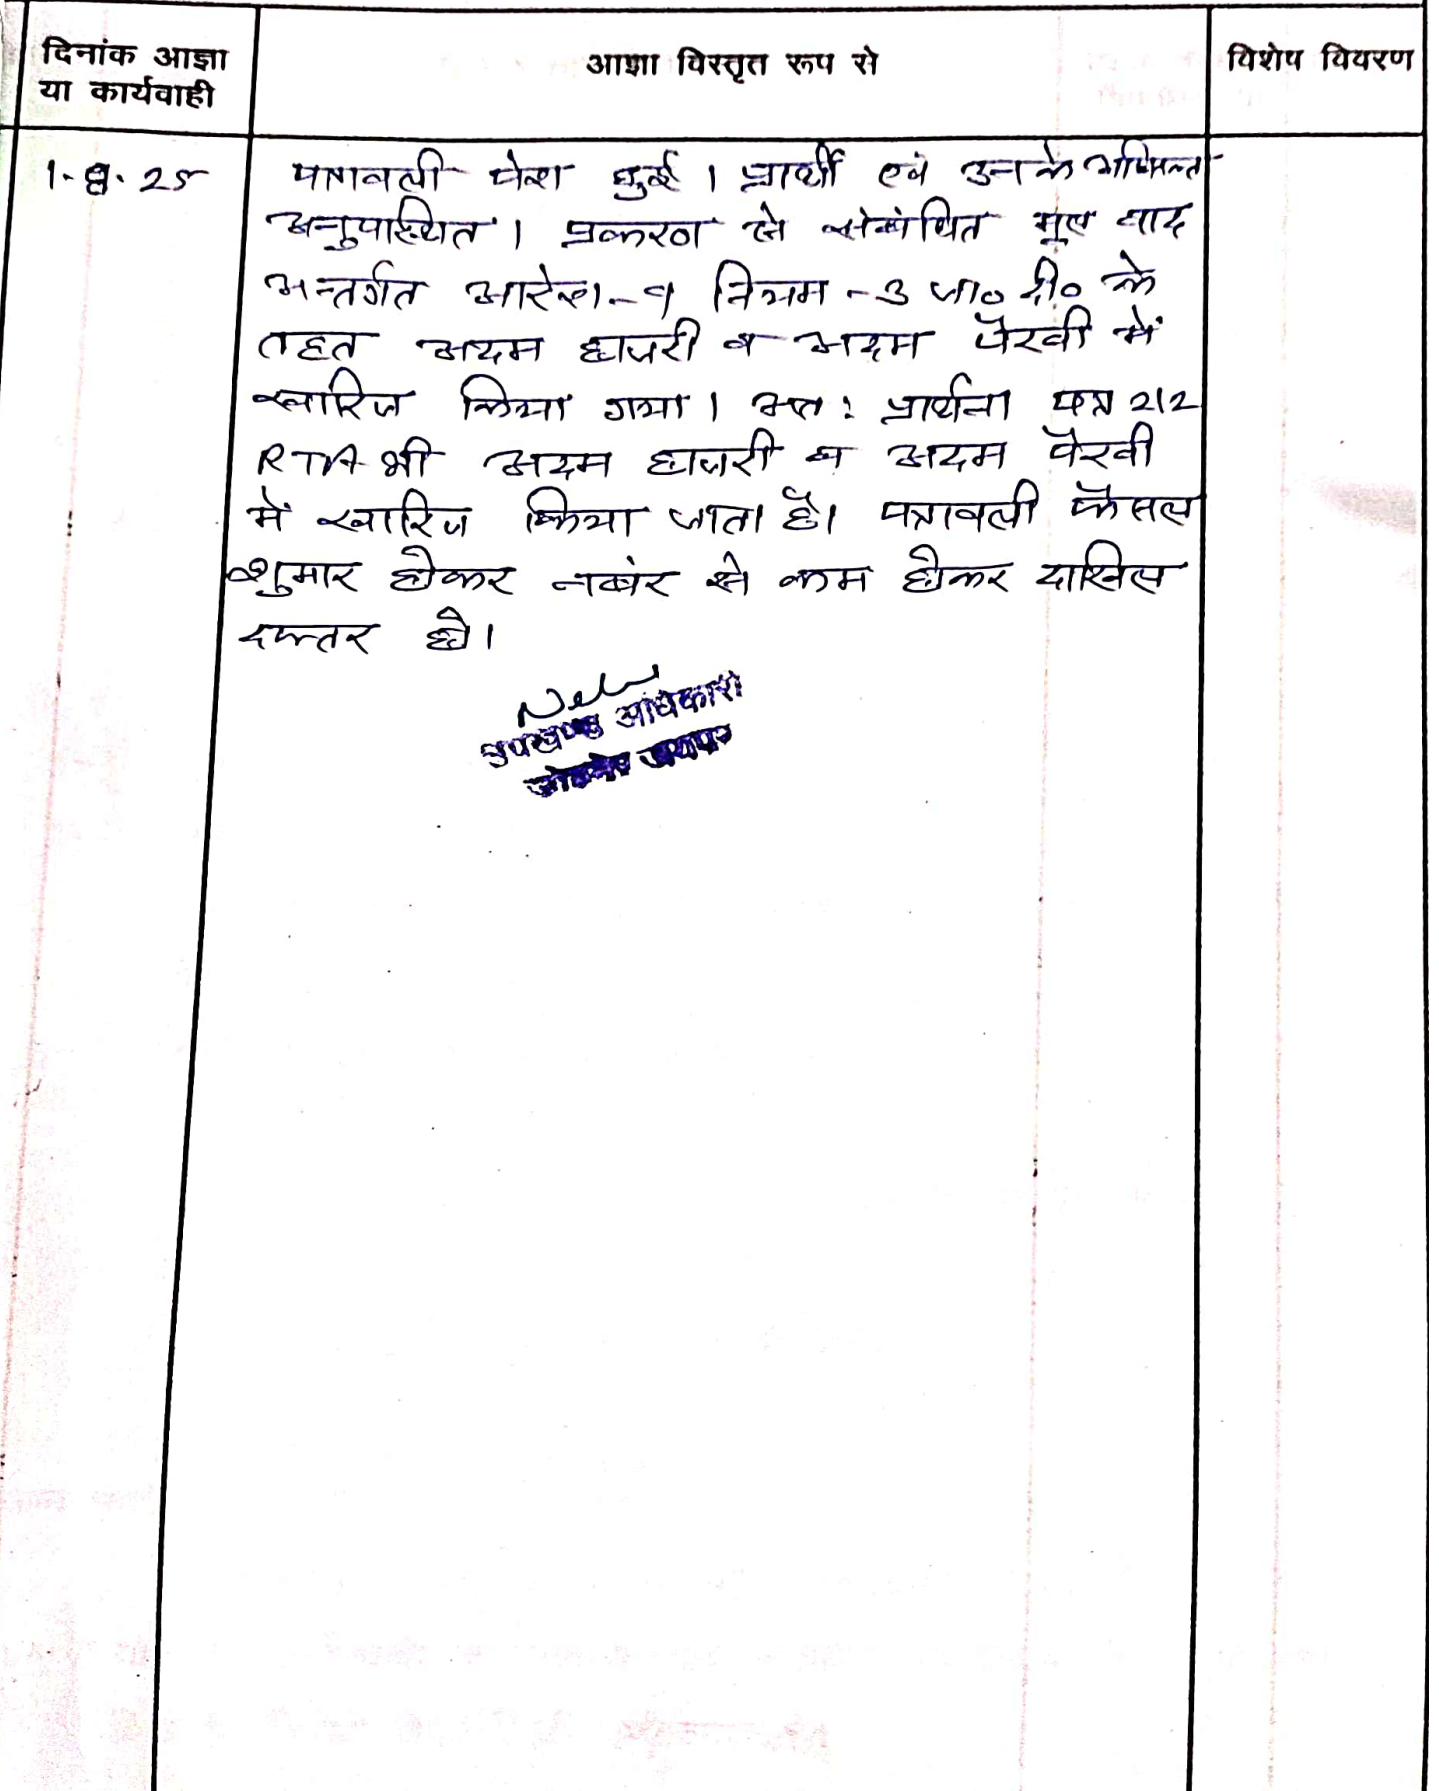 दिनांक आज्ञा
या कार्यवाही
आज्ञा विस्तृत रूप से
विशेष विवरण
1.8.25
पत्रावली पेश हुई । प्रार्थी एवं उनके अधिवक्ता
अनुपस्थित । प्रकरण से संबंधित मूल वाद
अन्तर्गत आदेश-9 नियम-3 जा० दी० के
तहत अदम हाजरी व अदम पैरवी में
खारिज किया गया । अतः प्रार्थना पत्र 212
RTA भी अदम हाजरी व अदम पैरवी
में खारिज किया जाता है। पत्रावली फैसल
शुमार होकर नबंर से कम होकर दाखिल
दफ्तर हो।
उपखण्ड अधिकारी